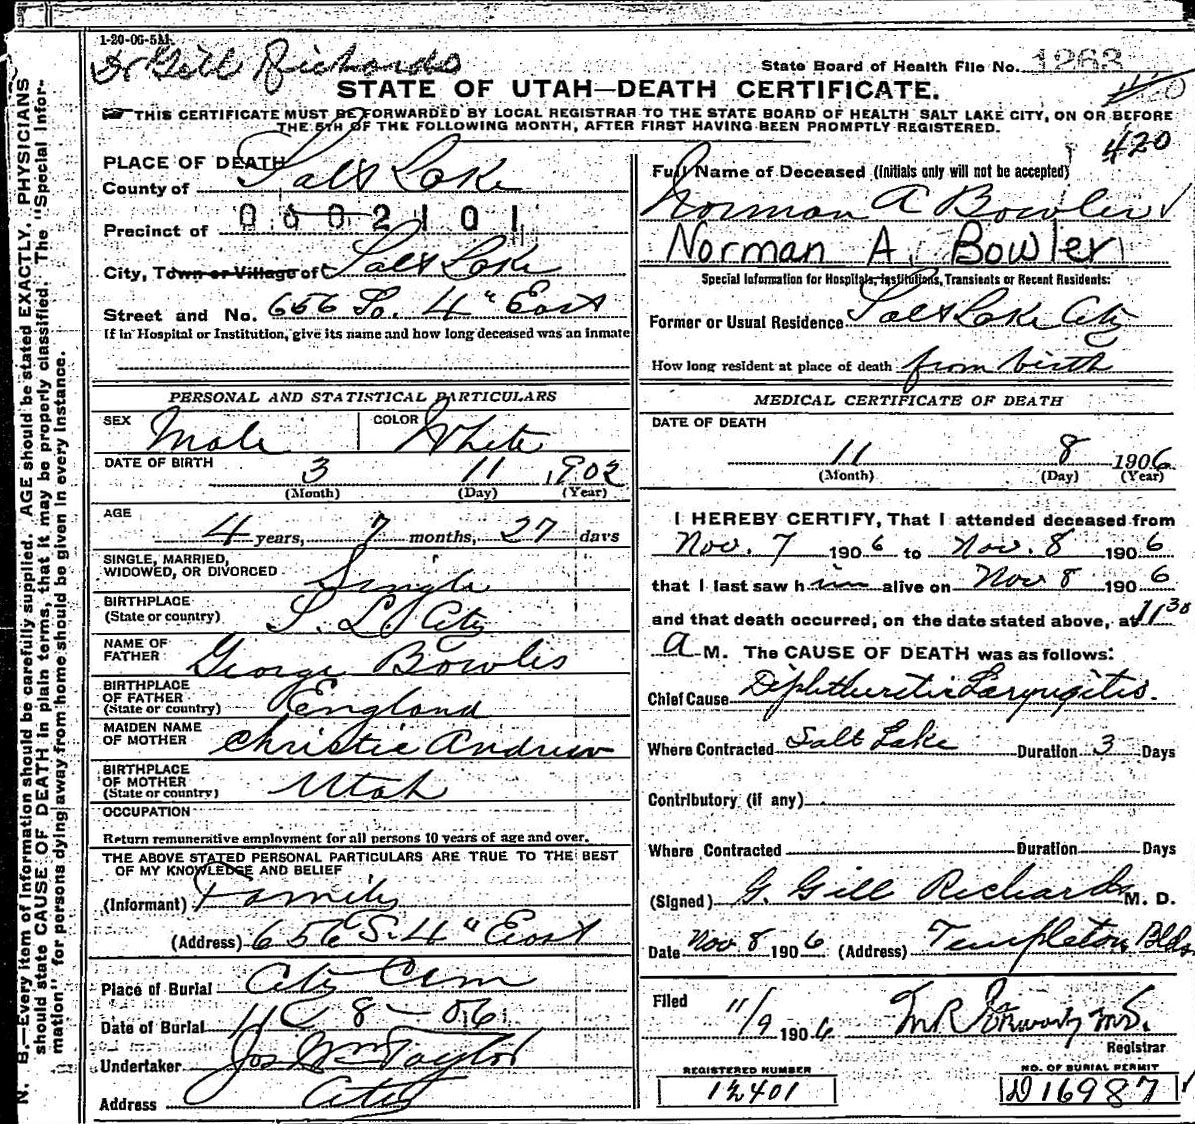 1-20-06-5M.
Dr Gill Richards
State Board of Health File No. 1263
STATE OF UTAH—DEATH CERTIFICATE.
THIS CERTIFICATE MUST BE FORWARDED BY LOCAL REGISTRAR TO THE STATE BOARD OF HEALTH SALT LAKE CITY, ON OR BEFORE
THE 5TH OF THE FOLLOWING MONTH, AFTER FIRST HAVING BEEN PROMPTLY REGISTERED.
420
N. B.—Every item of information should be carefully supplied. AGE should be stated EXACTLY. PHYSICIANS
should state CAUSE OF DEATH in plain terms, that it may be properly classified. The "Special Infor-
mation" for persons dying away from home should be given in every instance.
PLACE OF DEATH
County of Salt Lake
0002101
Precinct of
City, Town or Village of Salt Lake
Street and No. 656 So. 4" East
If in Hospital or Institution, give its name and how long deceased was an inmate
PERSONAL AND STATISTICAL PARTICULARS
SEX Male COLOR White
DATE OF BIRTH 3 11 1902
(Month) (Day) (Year)
AGE
4 years, 7 months, 27 days
SINGLE, MARRIED,
WIDOWED, OR DIVORCED Single
BIRTHPLACE
(State or country) S. L. City
NAME OF
FATHER George Bowles
BIRTHPLACE
OF FATHER England
(State or country)
MAIDEN NAME
OF MOTHER Christie Andrew
BIRTHPLACE
OF MOTHER Utah
(State or country)
OCCUPATION
Return remunerative employment for all persons 10 years of age and over.
THE ABOVE STATED PERSONAL PARTICULARS ARE TRUE TO THE BEST
OF MY KNOWLEDGE AND BELIEF
(Informant) Family
(Address) 656 S. 4" East
Place of Burial City Cem
Date of Burial 11 8 - 06
Undertaker Jos Wm Taylor
Address City
Full Name of Deceased (Initials only will not be accepted)
Norman A Bowler
Norman A. Bowler
Special Information for Hospitals, Institutions, Transients or Recent Residents:
Former or Usual Residence Salt Lake City
How long resident at place of death from birth
MEDICAL CERTIFICATE OF DEATH
DATE OF DEATH
11 8 1906
(Month) (Day) (Year)
I HEREBY CERTIFY, That I attended deceased from
Nov. 7 1906 to Nov. 8 1906
that I last saw him alive on Nov 8 1906
and that death occurred, on the date stated above, at 11 30
A M. The CAUSE OF DEATH was as follows:
Chief Cause Diphtheretic Laryngitis.
Where Contracted Salt Lake Duration 3 Days
Contributory (if any)
Where Contracted Duration Days
(Signed) G. Gill Richards M. D.
Date Nov 8 1906 (Address) Templeton Bldg
Filed 11/9 1906
Registrar
REGISTERED NUMBER
12401
NO. OF BURIAL PERMIT
D16987